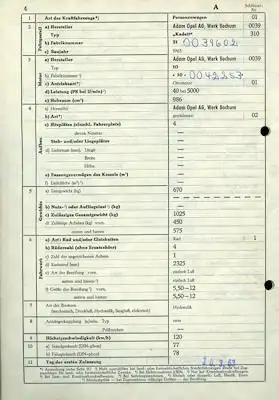 4 A Schlüssel-Nr.
1 Art des Kraftfahrzeugs*) Personenwagen 01
2 a) Hersteller Adam Opel AG, Werk Bochum 0039
Typ „Kadett" 310
b) Fabriknummer 31 0039602
c) Baujahr 1963
3 a) Hersteller Adam Opel AG, Werk Bochum 0039
Typ 10
b) Fabriknummer*) 10 - 0042253
c) Antriebsart*) Ottomotor 01
d) Leistung (PS bei U/min) 40 bei 5000
e) Hubraum (cm³) 986
4 a) Hersteller Adam Opel AG, Werk Bochum 0039
b) Art*) geschlossen 02
c) Sitzplätze (einschl. Fahrerplatz) 4
davon Notsitze -
Steh- und/oder Liegeplätze -
d) Laderaum (mm) Länge -
Breite -
Höhe -
e) Fassungsvermögen des Kessels (m³) -
5 a) Leergewicht (kg) 670
b) Nutz- oder Aufliegelast (kg) -
c) Zulässiges Gesamtgewicht (kg) 1025
d) Zulässige Achslast (kg) vorn 450
mitten und hinten 575
6 a) Art: Rad und/oder Gleisketten Rad 1
b) Räderzahl (ohne Ersatzräder) 4
c) Zahl der angetriebenen Achsen 1
d) Radstand (mm) 2325
e) Art der Bereifung vorn einfach Luft
mitten und hinten einfach Luft
f) Größe der Bereifung vorn 5,50—12
mitten und hinten 5,50—12
7 Art der Bremsen Hydraulik
(mechanisch, Druckluft, Hydraulik, Saugluft, elektrisch)
8 Anhängerkupplung ja/nein Typ nein
Prüfzeichen -
9 Höchstgeschwindigkeit (km/h) 120
10 a) Standgeräusch (DIN-phon) 77
b) Fahrgeräusch (DIN-phon) 78
11 Tag der ersten Zulassung